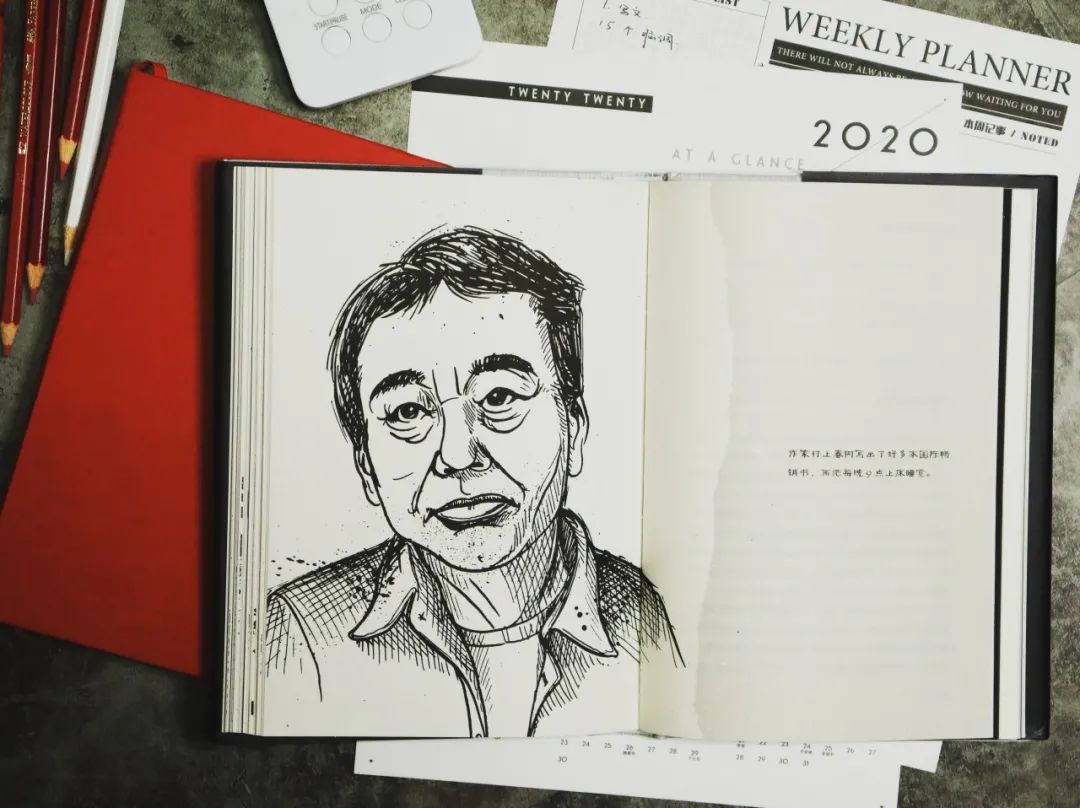 START/PAUSE
MODE
LIST
1. 写文
WEEKLY PLANNER
THERE WILL NOT ALWAYS BE
W WAITING FOR YOU
本周记事 / NOTED
TWENTY TWENTY
2020
AT A GLANCE
作家村上春树写出了好多本国际畅
销书，而他每晚9点上床睡觉。
23 24 25 26 27 28 29
22 23 24 25 26 27
30
28 29 30 31